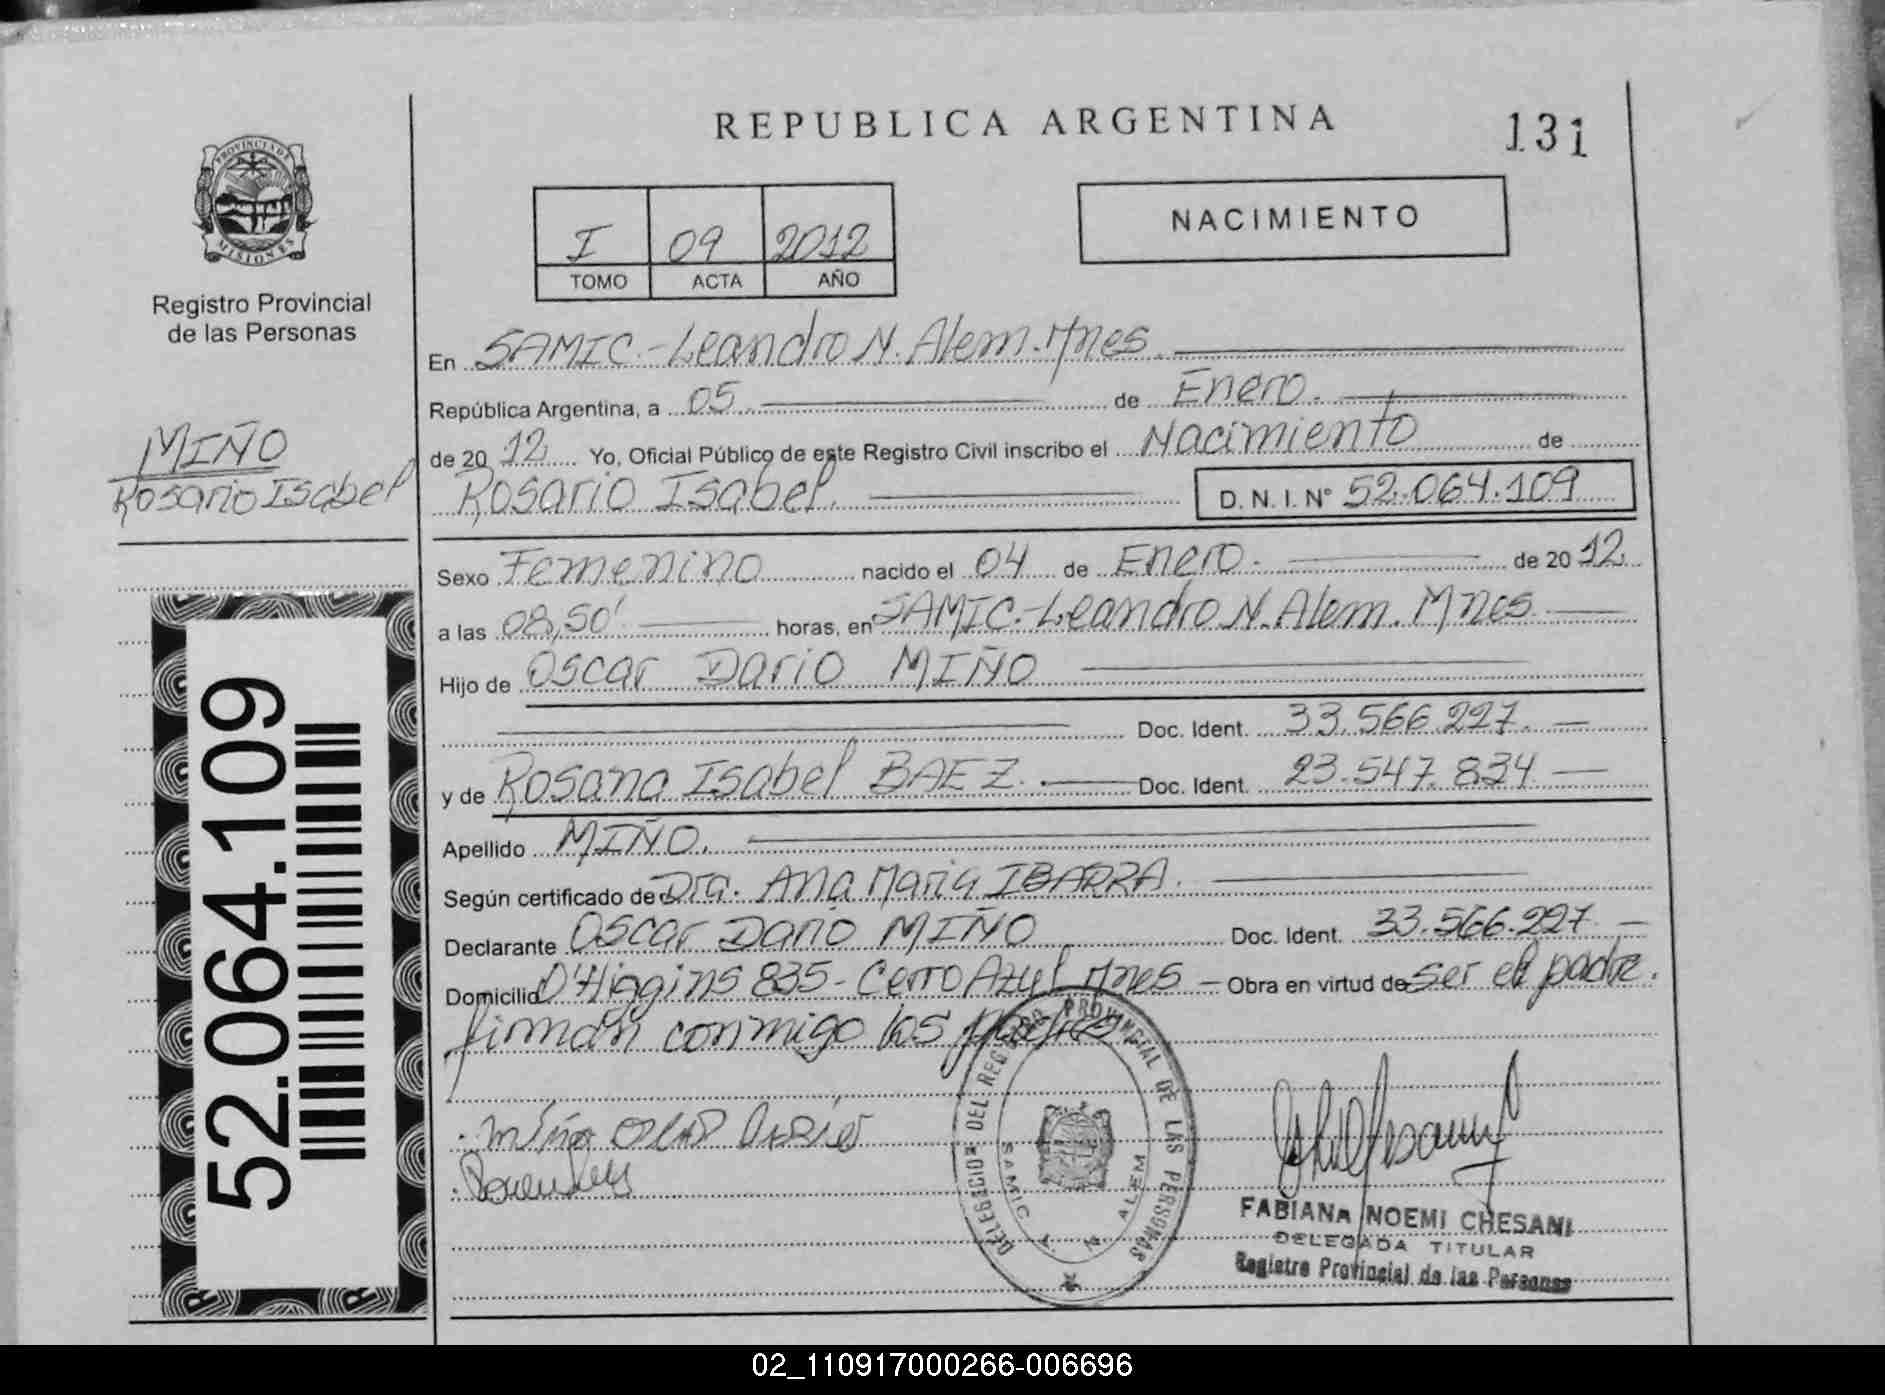 REPUBLICA ARGENTINA
131
PROVINCIA DE MISIONES
Registro Provincial
de las Personas
I 09 2012
TOMO ACTA AÑO
NACIMIENTO
MIÑO
Rosario Isabel
En SAMIC.-Leandro N. Alem. Mnes.
República Argentina, a 05 de Enero.
de 2012 Yo, Oficial Público de este Registro Civil inscribo el Nacimiento de
Rosario Isabel. D.N.I. N° 52.064.109
Sexo Femenino nacido el 04 de Enero. de 2012.
a las 08,50' horas, en SAMIC.-Leandro N. Alem. Mnes
Hijo de Oscar Dario MIÑO
Doc. Ident. 33.566.227.
y de Rosana Isabel BAEZ. Doc. Ident. 23.547.834
Apellido MIÑO.
Según certificado de Dra. Ana Maria IBARRA.
Declarante Oscar Dario MIÑO Doc. Ident. 33.566.227
Domicilio O'Higgins 835-Cerro Azul Mnes - Obra en virtud de ser el padre.
firman conmigo los padres
miño oscar Dario
DELEGACION DEL REGISTRO PROVINCIAL DE LAS PERSONAS
SAMIC ALEM
FABIANA NOEMI CHESANI
DELEGADA TITULAR
Registro Provincial de las Personas
52.064.109
02_110917000266-006696